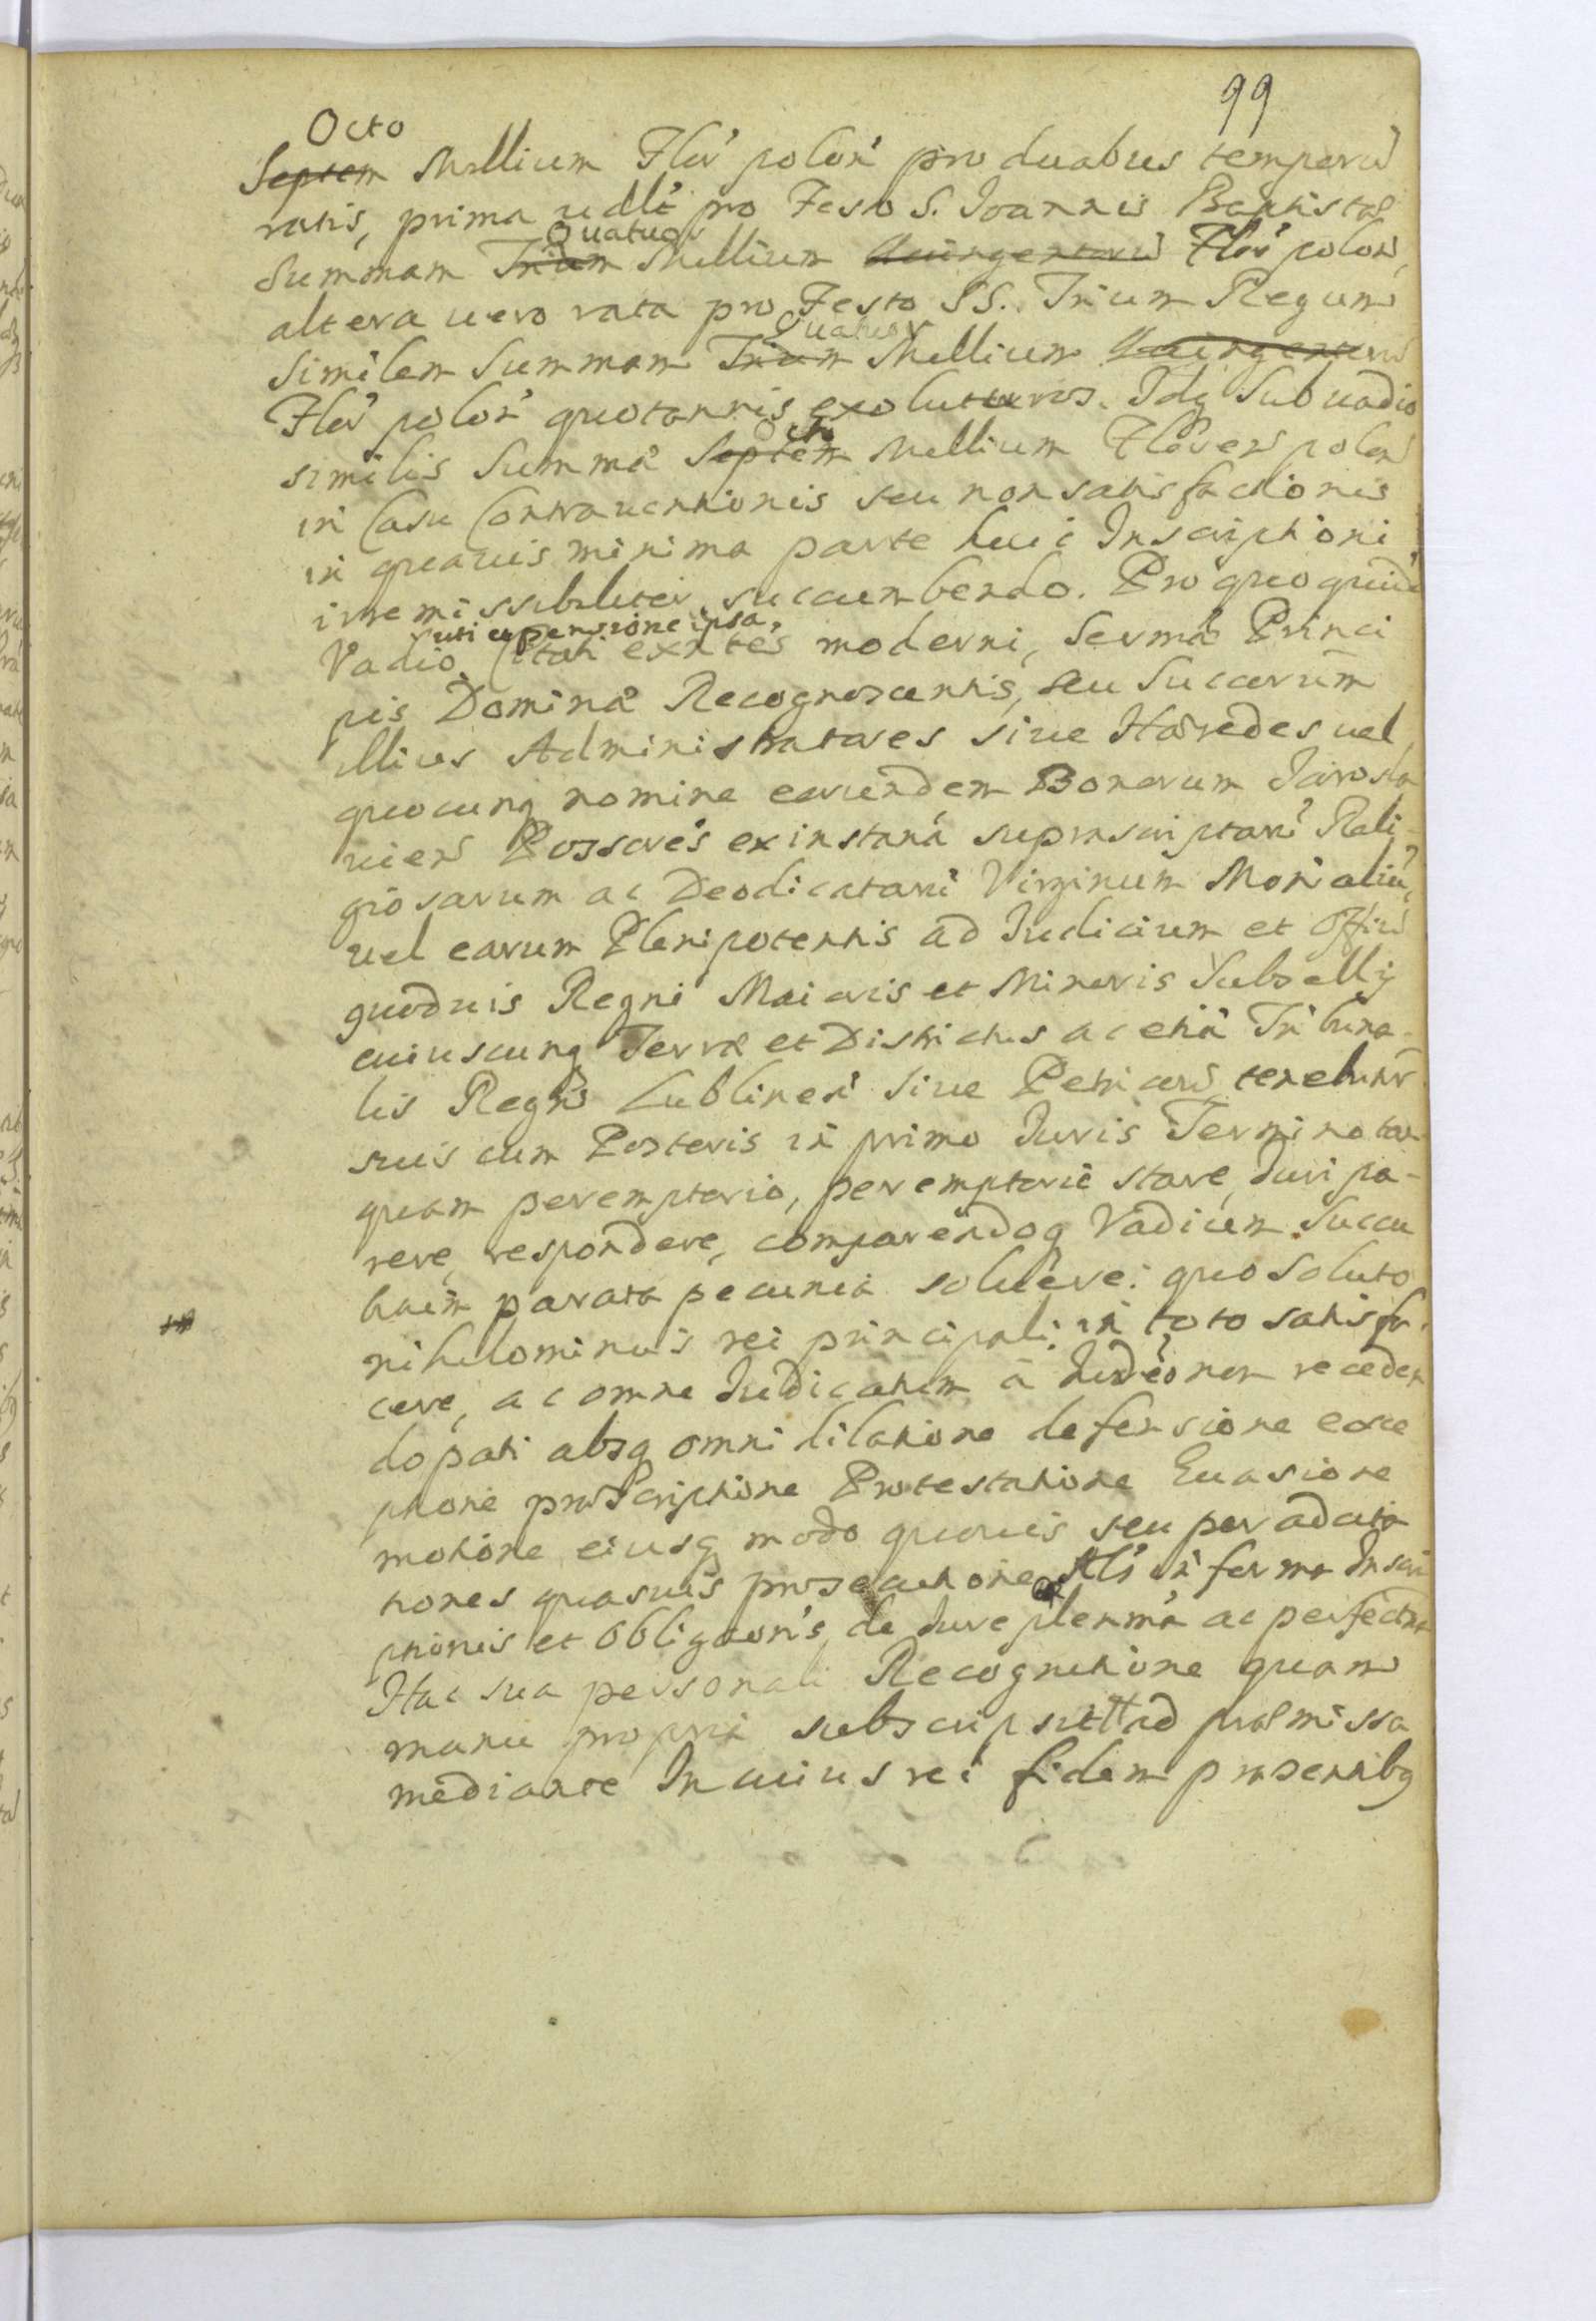 99
Octo
Septem Millium Flor̃ polon̾ pro duabus temporũ
ratis, prima udlt̃ pro Festo S. Joannis Baptistæ
Quatuor
Summam Trium Millium Quingentorũ Flor̃ polon,
altera uero rata pro Festo SS. Trium Regum
Quatuor
similem Summam Trium Millium Quingentorũ
Flor̃ polon̾ quotannis exoluturos. Idq Sub uadio
Octo
similis Summæ Septem Millium Floren polon
in Casu Contrauentionis seu non satisfactionis
in quauis minima parte huic Inscriptioni
irremissibiliter succumbendo. Pro quo quidẽ
uti et pensione ipsa,
Vadio Citati exñtes moderni, Sermæ Princi
pis Dominæ Recognoscentis, seu Succorum
illius Administratores siue Hæredes uel
quocunq nomine eorundem Bonorum Jarosla
uien Possores ex instantia suprascriptarũ Reli-
giosarum ac Deodicatarũ Virginum Monialiũ,
uel earum Plenipotentis ad Judicium et Offiũ
quoduis Regni Maioris et Minoris Subsellij
cuiuscunq Terræ et Districtus ac etiã Tribuna-
lis Regni Lublinen̾ siue Petricouien tenebuntr
suis cum Posteris in primo Juris Termino tan
quam peremptorio, peremptorie stare, Juri pa-
rere, respondere, comparendoq Vadium Succu
buim parata pecunia soluere: quo soluto
nihilominus rei principali in toto satisfa-
cere, ac omne Judicatum à Judio non receden
do pati absq omni dilatione defensione exce
ptione proscriptione Protestatione Euasione
motione eiusq modo quouis seu per adcita
tiones quasuis prosecutione Al's in forma Inscri
ptionis et Obligaon's, de Jure plenma ac perfectma
Hac sua personali Recognitione quam
manu propria subscripsit ad præmissa
mediante In cuius rei fidem præsentibq